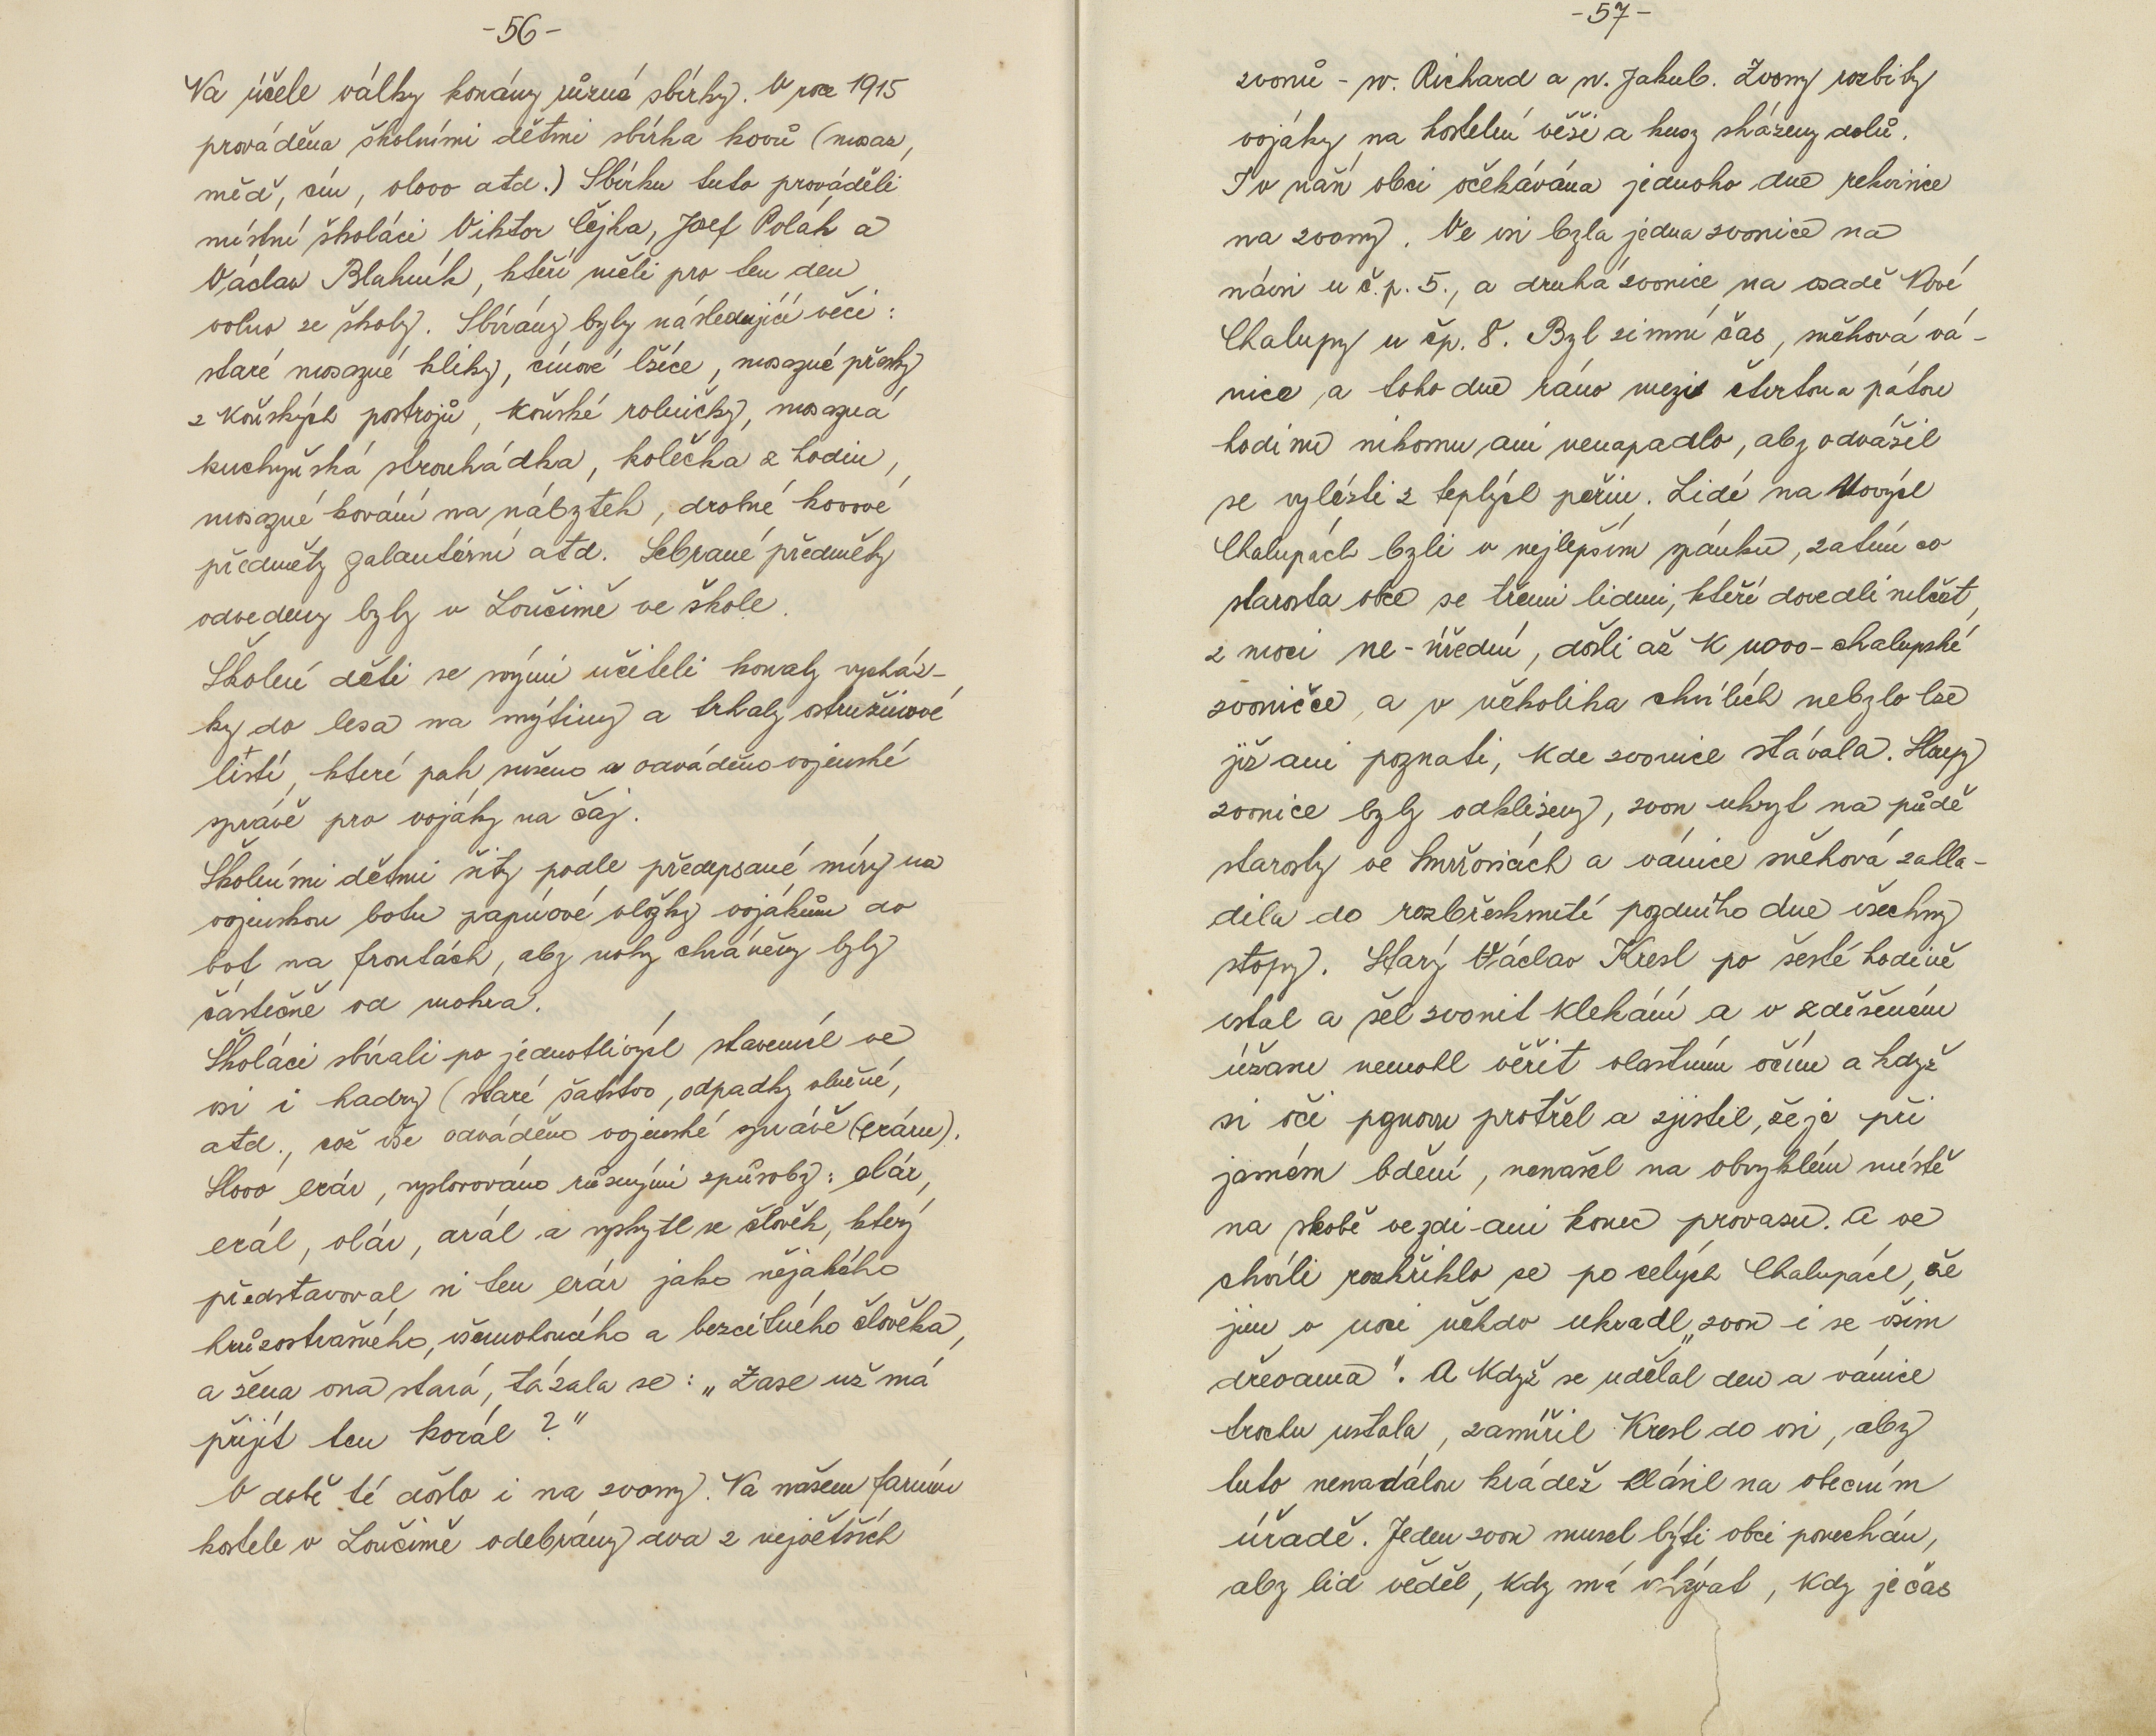 -56-
Na účele války konány různé sbírky. V roce 1915
prováděna školními dětmi sbírka kovů (mosaz,
měď, cín, olovo atd.) Sbírku tuto prováděli
místní školáci Viktor Čejka, Josef Polák a
Václav Blahník, kteří měli pro ten den
volno ze školy. Sbírány byly následující věci:
staré mosazné kliky, cínové lžíce, mosazné přezky
z koňských postrojů, koňské rolničky, mosazná
kuchyňská strouhádka, kolečka z hodin,
mosazné kování na nábytek, drobné kovové
předměty galanterní atd. Sebrané předměty
odvedeny byly v Loučimě ve škole.
Školní děti se svými učiteli konaly vycház-
ky do lesa na mýtiny a trhaly ostružinové
listí, které pak sušeno a odváděno vojenské
správě pro vojáky na čaj.
Školními dětmi šity podle předepsané míry na
vojenskou botu papírové vložky vojákům do
bot na frontách, aby nohy chráněny byly
částečně od mokra.
Školáci sbírali po jednotlivých staveních ve
vsi i hadry (staré šatstvo, odpadky vlněné,
atd., což vše odváděno vojenské správě (eráru).
Slovo erár, vyslovováno různými způsoby: elár,
erál, olár, arál a vyskytl se člověk, který
představoval si ten erár jako nějakého
hrůzostrašného, všemohoucího a bezcitného člověka,
a žena ona stará, tázala se: „Zase už má
přijít ten korál?"
V době té došlo i na zvony. Na našem farním
kostele v Loučimě odebrány dva z největších
-57-
zvonů - sv. Richard a sv. Jakub. Zvony rozbity
vojáky na kostelní věži a kusy sházeny dolů.
I v naší obci očekávána jednoho dne rekvisice
na zvony. Ve vsi byla jedna zvonice na
návsi u č.p. 5., a druhá zvonice na osadě Nové
Chalupy u čp. 8. Byl zimní čas, sněhová vá-
nice a toho dne ráno mezi čtvrtou a pátou
hodinou nikomu ani nenapadlo, aby odvážil
se vylézti z teplých peřin. Lidé na Nových
Chalupách byli v nejlepším spánku, zatím co
starosta obce se třemi lidmi, kteří dovedli mlčet,
z moci ne-úřední, došli až k novo-chalupské
zvoničce, a v několika chvílích nebylo lze
již ani poznati, kde zvonice stávala. Sloupy
zvonice byly odklizeny, zvon ukryt na půdě
starosty ve Smržovicách a vánice sněhová zahla-
dila do rozbřesknutí pozdního dne všechny
stopy. Starý Václav Kresl po šesté hodině
vstal a šel zvonit klekání a v zděšeném
úžasu nemohl věřit vlastním očím a když
si oči znovu protřel a zjistil, že je při
jasném bdění, nenašel na obvyklém místě
na skobě ve zdi ani konec provazu. A ve
chvíli rozkřiklo se po celých Chalupách, že
jim v noci někdo ukradl „zvon i se vším
dřevama". A když se udělal den a vánice
trochu ustala, zamířil Kresl do vsi, aby
tuto nenadálou krádež hlásil na obecním
úřadě. Jeden zvon musel býti obci ponechán,
aby lid věděl, kdy má vstávat, kdy je čas